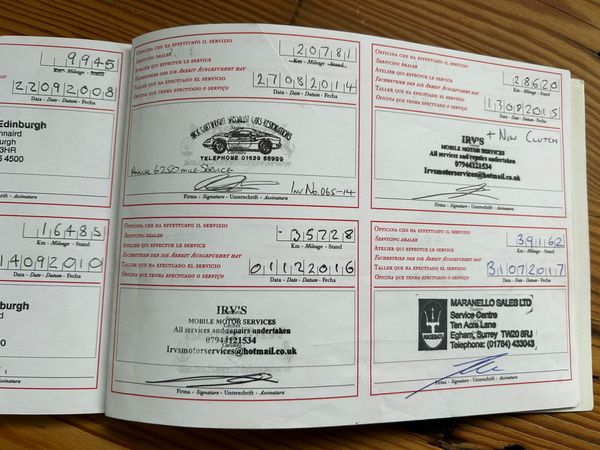 9945
Km - Mileage - Stand
22092008
Data - Date - Datum - Fecha
Edinburgh
3HR
5 4500
16485
Km - Mileage - Stand
14092010
Data - Date - Datum - Fecha
nburgh
Officina che ha effettuato il servizio
Servicing dealer
Atelier qui effectue le service
Fachbetrieb der die Arbeit ausgefuehrt hat
Taller que ha efectuado el servicio
Oficina que tenha efectuado o serviço
20781
Km - Mileage - Stand
27082014
Data - Date - Datum - Fecha
NICK CARTWRIGHT SPECIALIST CARS
TELEPHONE 01629
ANNUAL 6250 MILE SERVICE
INV No. 065-14
Firma - Signature - Unterschrift - Assinatura
Officina che ha effettuato il servizio
Servicing dealer
Atelier qui effectue le service
Fachbetrieb der die Arbeit ausgefuehrt hat
Taller que ha efectuado el servicio
Oficina que tenha efectuado o serviço
28620
Km - Mileage - Stand
13082015
Data - Date - Datum - Fecha
+ NEW CLUTCH
IRV'S
MOBILE MOTOR SERVICES
All services and repairs undertaken
07944121534
Irvsmotorservices@hotmail.co.uk
Firma - Signature - Unterschrift - Assinatura
Officina che ha effettuato il servizio
Servicing dealer
Atelier qui effectue le service
Fachbetrieb der die Arbeit ausgefuehrt hat
Taller que ha efectuado el servicio
Oficina que tenha efectuado o serviço
35728
Km - Mileage - Stand
01122016
Data - Date - Datum - Fecha
IRV'S
MOBILE MOTOR SERVICES
All services and repairs undertaken
07944121534
Irvsmotorservices@hotmail.co.uk
Firma - Signature - Unterschrift - Assinatura
Officina che ha effettuato il servizio
Servicing dealer
Atelier qui effectue le service
Fachbetrieb der die Arbeit ausgefuehrt hat
Taller que ha efectuado el servicio
Oficina que tenha efectuado o serviço
39162
Km - Mileage - Stand
31072017
Data - Date - Datum - Fecha
MASERATI
MARANELLO SALES LTD
Service Centre
Ten Acre Lane
Egham, Surrey TW20 8RJ
Telephone: (01784) 433043
Firma - Signature - Unterschrift - Assinatura